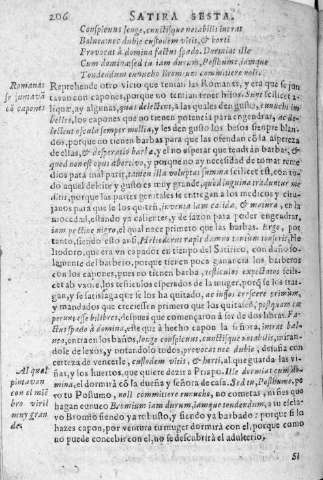 206 SATIRA SESTA.
Conspicuus longe, cunctisque notabilis intrat
Balneanec dubie custodem vitis, & horti
Provocat à domina factus spado. Dormiat ille
Cum domina sed tu iam durum, Posthume, iamque
Tondendum eunucho Bromium committere noli.
Romanas se juntavã cõ capones
Reprehende otro vicio que tenian las Romanas, y era que se jun
tavan con capones, porque no tenian
que, ay algunas, quas delectent, a las quales den gusto, eunuchi im
belles, los capones que no tienen potencia para engendrar, ac de-
lectent oscula semper mollia, y les den gusto los besos siempre blan
dos, porque no tienen barbas para que las ofendan cõ la aspereza
de ellas, & desperatio barba, y el no esperar que tendràn barba, &
quod non est opus abortivo, y porque no ay necesidad de tomar reme
dios para mal parir, tamen illa voluptas summa scilicet est, con to-
do aquel deleite y gusto es muy grande, quod inguina traduntur me
dicis, porque las partes genitales se entregan a los medicos y ciru-
janos para que se los quiten, iuventa iam calida, & matura, en la
mocedad, estando ya caliente, y de sazon para poder engendrar,
iam pectine nigro, el qual nace primero que las barbas. Ergo, por
tanto, siendo esto assi, Heliodorus rapit damno tonsoris, He
liodoro, que era vn capador en tiempo del Satirico, con daño so-
lamente del barbero, porque tiene poca ganancia los barberos
con los capones, pues no tienen barba, testiculos expectatos scili-
cet ab vxore, los testiculos esperados de la muger, porq̃ se los trai-
gan, y se satisfaga que se los ha quitado, ac iussos crescere primùm,
y mandados que creciessen primero que los quitassẽ, postquam cœ
perunt esse bilibres, despues que començaron à ser de dos libras. Fa-
ctus spado à domina, este que à hecho capon la señora, intrat bal-
nea, entra en los baños, longe conspicuus, cunctisque notabilis, mirãn-
dole de lexos, y notandolo todos, provocat nec dubie, desafia con
certeza de vencerle, custodem vitis, & horti, al que guarda las vi-
ñas, y los huertos, que quiere dezir a Priapo. Ille dormiat cum do-
mina, el dormirà cõ la dueña y señora de casa. Sed tu, Posthume, pe
ro tu Postumo, noli committere eunucho, no cometas, ni fies que
hagan eunuco Bromium iam durum, iamque tondendum, a tu escla-
vo Bromio siendo ya robusto, y siendo ya barbado: porque si lo
hazes capon, por ventura tu muger dormirà con el, porque como
no puede concebir con el, no se descubrirà el adulterio,
Al qual pintavan con el miẽ bro viril muy gran de.
Si